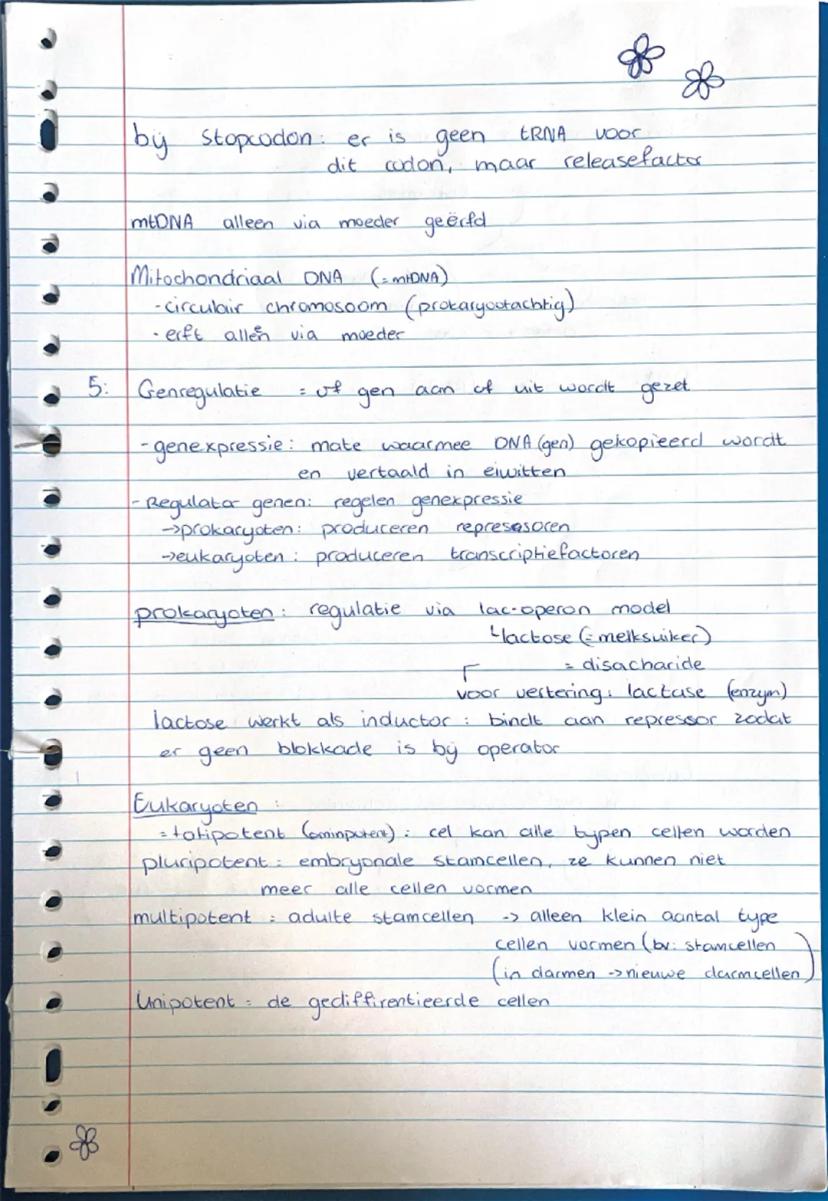 bij stopcodon: er is geen tRNA voor
dit codon, maar releasefactor
mtDNA alleen via moeder geërfd
Mitochondriaal DNA (=mtDNA)
- circulair chromosoom (prokaryootachtig)
- erft alleen via moeder
5: Genregulatie = of gen aan of uit wordt gezet
- genexpressie: mate waarmee DNA (gen) gekopieerd wordt
en vertaald in eiwitten
- Regulator genen: regelen genexpressie
→prokaryoten: produceren repressoren
→eukaryoten: produceren transcriptiefactoren
prokaryoten: regulatie via lac-operon model
↳lactose (=melksuiker)
= disacharide
voor vertering: lactase (enzym)
lactose werkt als inductor: bindt aan repressor zodat
er geen blokkade is bij operator
Eukaryoten:
= totipotent (omnipotent): cel kan alle typen cellen worden
pluripotent: embryonale stamcellen, ze kunnen niet
meer alle cellen vormen
multipotent: adulte stamcellen -> alleen klein aantal type
cellen vormen (bv: stamcellen
in darmen -> nieuwe darmcellen)
Unipotent = de gediffirentieerde cellen